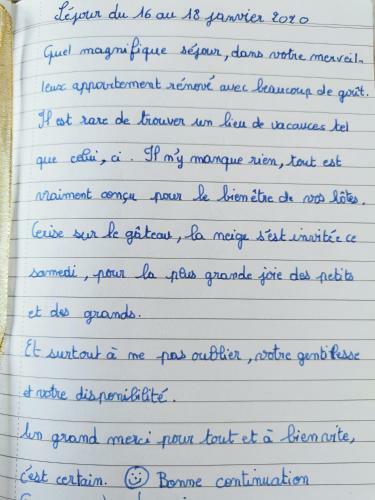 Séjour du 16 au 18 janvier 2020
Quel magnifique séjour, dans votre merveil-
leux appartement rénové avec beaucoup de goût.
Il est rare de trouver un lieu de vacances tel
que celui, ci. Il n'y manque rien, tout est
vraiment conçu pour le bien être de vos hôtes.
Cerise sur le gâteau, la neige s'est invitée ce
samedi, pour la plus grande joie des petits
et des grands.
Et surtout à ne pas oublier, votre gentillesse
et votre disponibilité.
Un grand merci pour tout et à bien vite,
c'est certain. ☺ Bonne continuation